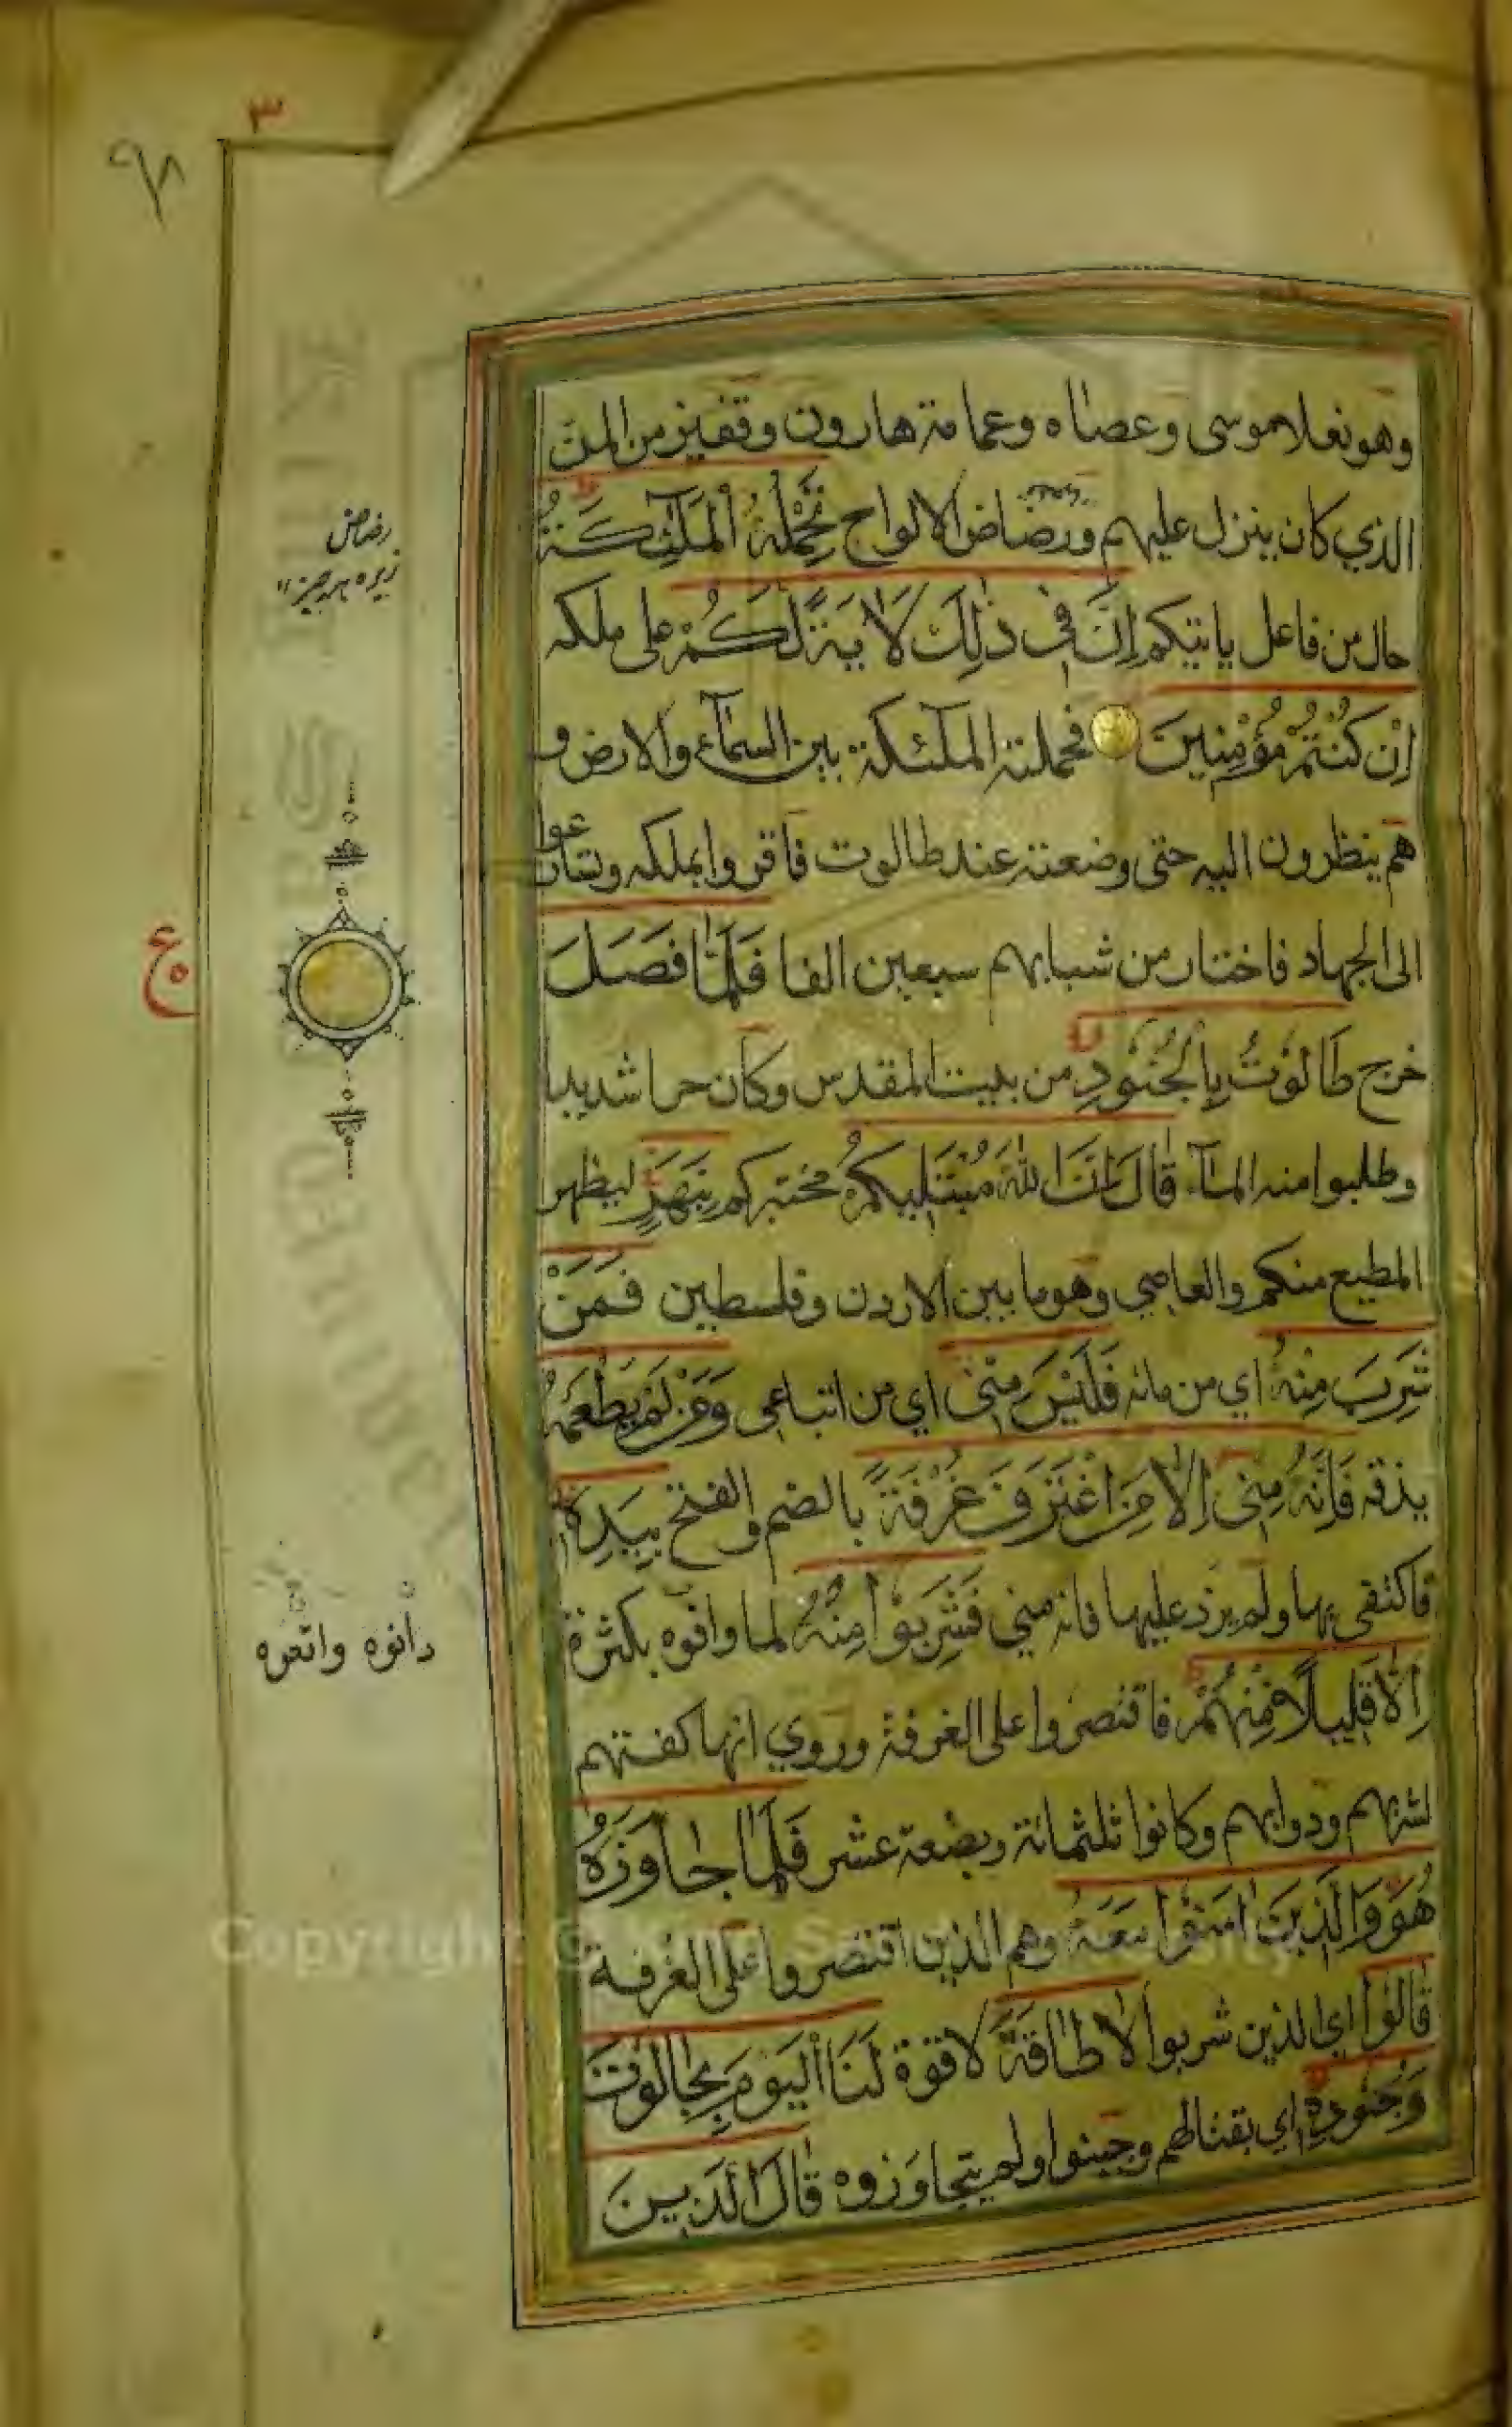 ٣
٩٨
وهو نعلا موسى وعصاه وعمامة هارون وقفيز من المن
الذي كان ينزل عليهم ورضاض الالواح تَحْمِلُهُ الْمَلٰٓئِكَةُ
حال من فاعل ياتيكم اِنَّ فِي ذٰلِكَ لَاٰيَةً لَكُمْ على ملكه
اِنْ كُنْتُمْ مُؤْمِنِينَ فحملته الملٓئكة بين السمآء والارض و
هم ينظرون اليه حتى وضعته عند طالوت فاقروا بملكه وتسارعوا
الى الجهاد فاختار من شبابهم سبعين الفا فَلَمَّا فَصَلَ
خرج طَالُوتُ بِالْجُنُودِ من بيت المقدس وكان حرا شديدا
وطلبوا منه المآء قَالَ اِنَّ اللّٰهَ مُبْتَلِيكُمْ مختبركم بِنَهَرٍ ليظهر
المطيع منكم والعاصي وهو ما بين الاردن وفلسطين فَمَنْ
شَرِبَ مِنْهُ اي من مائه فَلَيْسَ مِنِّي اي من اتباعي وَمَنْ لَمْ يَطْعَمْهُ
يذقه فَاِنَّهُ مِنِّي اِلَّا مَنِ اغْتَرَفَ غُرْفَةً بالضم والفتح بِيَدِهِ
فاكتفى بها ولم يزد عليها فانه مني فَشَرِبُوْا مِنْهُ لما وافوه بكثرة
اِلَّا قَلِيلًا مِنْهُمْ فاقتصروا على الغرفة وروي انها كفتهم
لشربهم ودوابهم وكانوا ثلثمائة وبضعة عشر فَلَمَّا جَاوَزَهُ
هُوَ وَالَّذِينَ اٰمَنُوْا مَعَهُ وهم الذين اقتصروا على الغرفة
قَالُوْا اي الذين شربوا لَا طَاقَةَ لا قوة لَنَا الْيَوْمَ بِجَالُوتَ
وَجُنُودِهِ اي بقتالهم وجبنوا ولم يتجاوزوه قَالَ الَّذِينَ
رضاض
ع